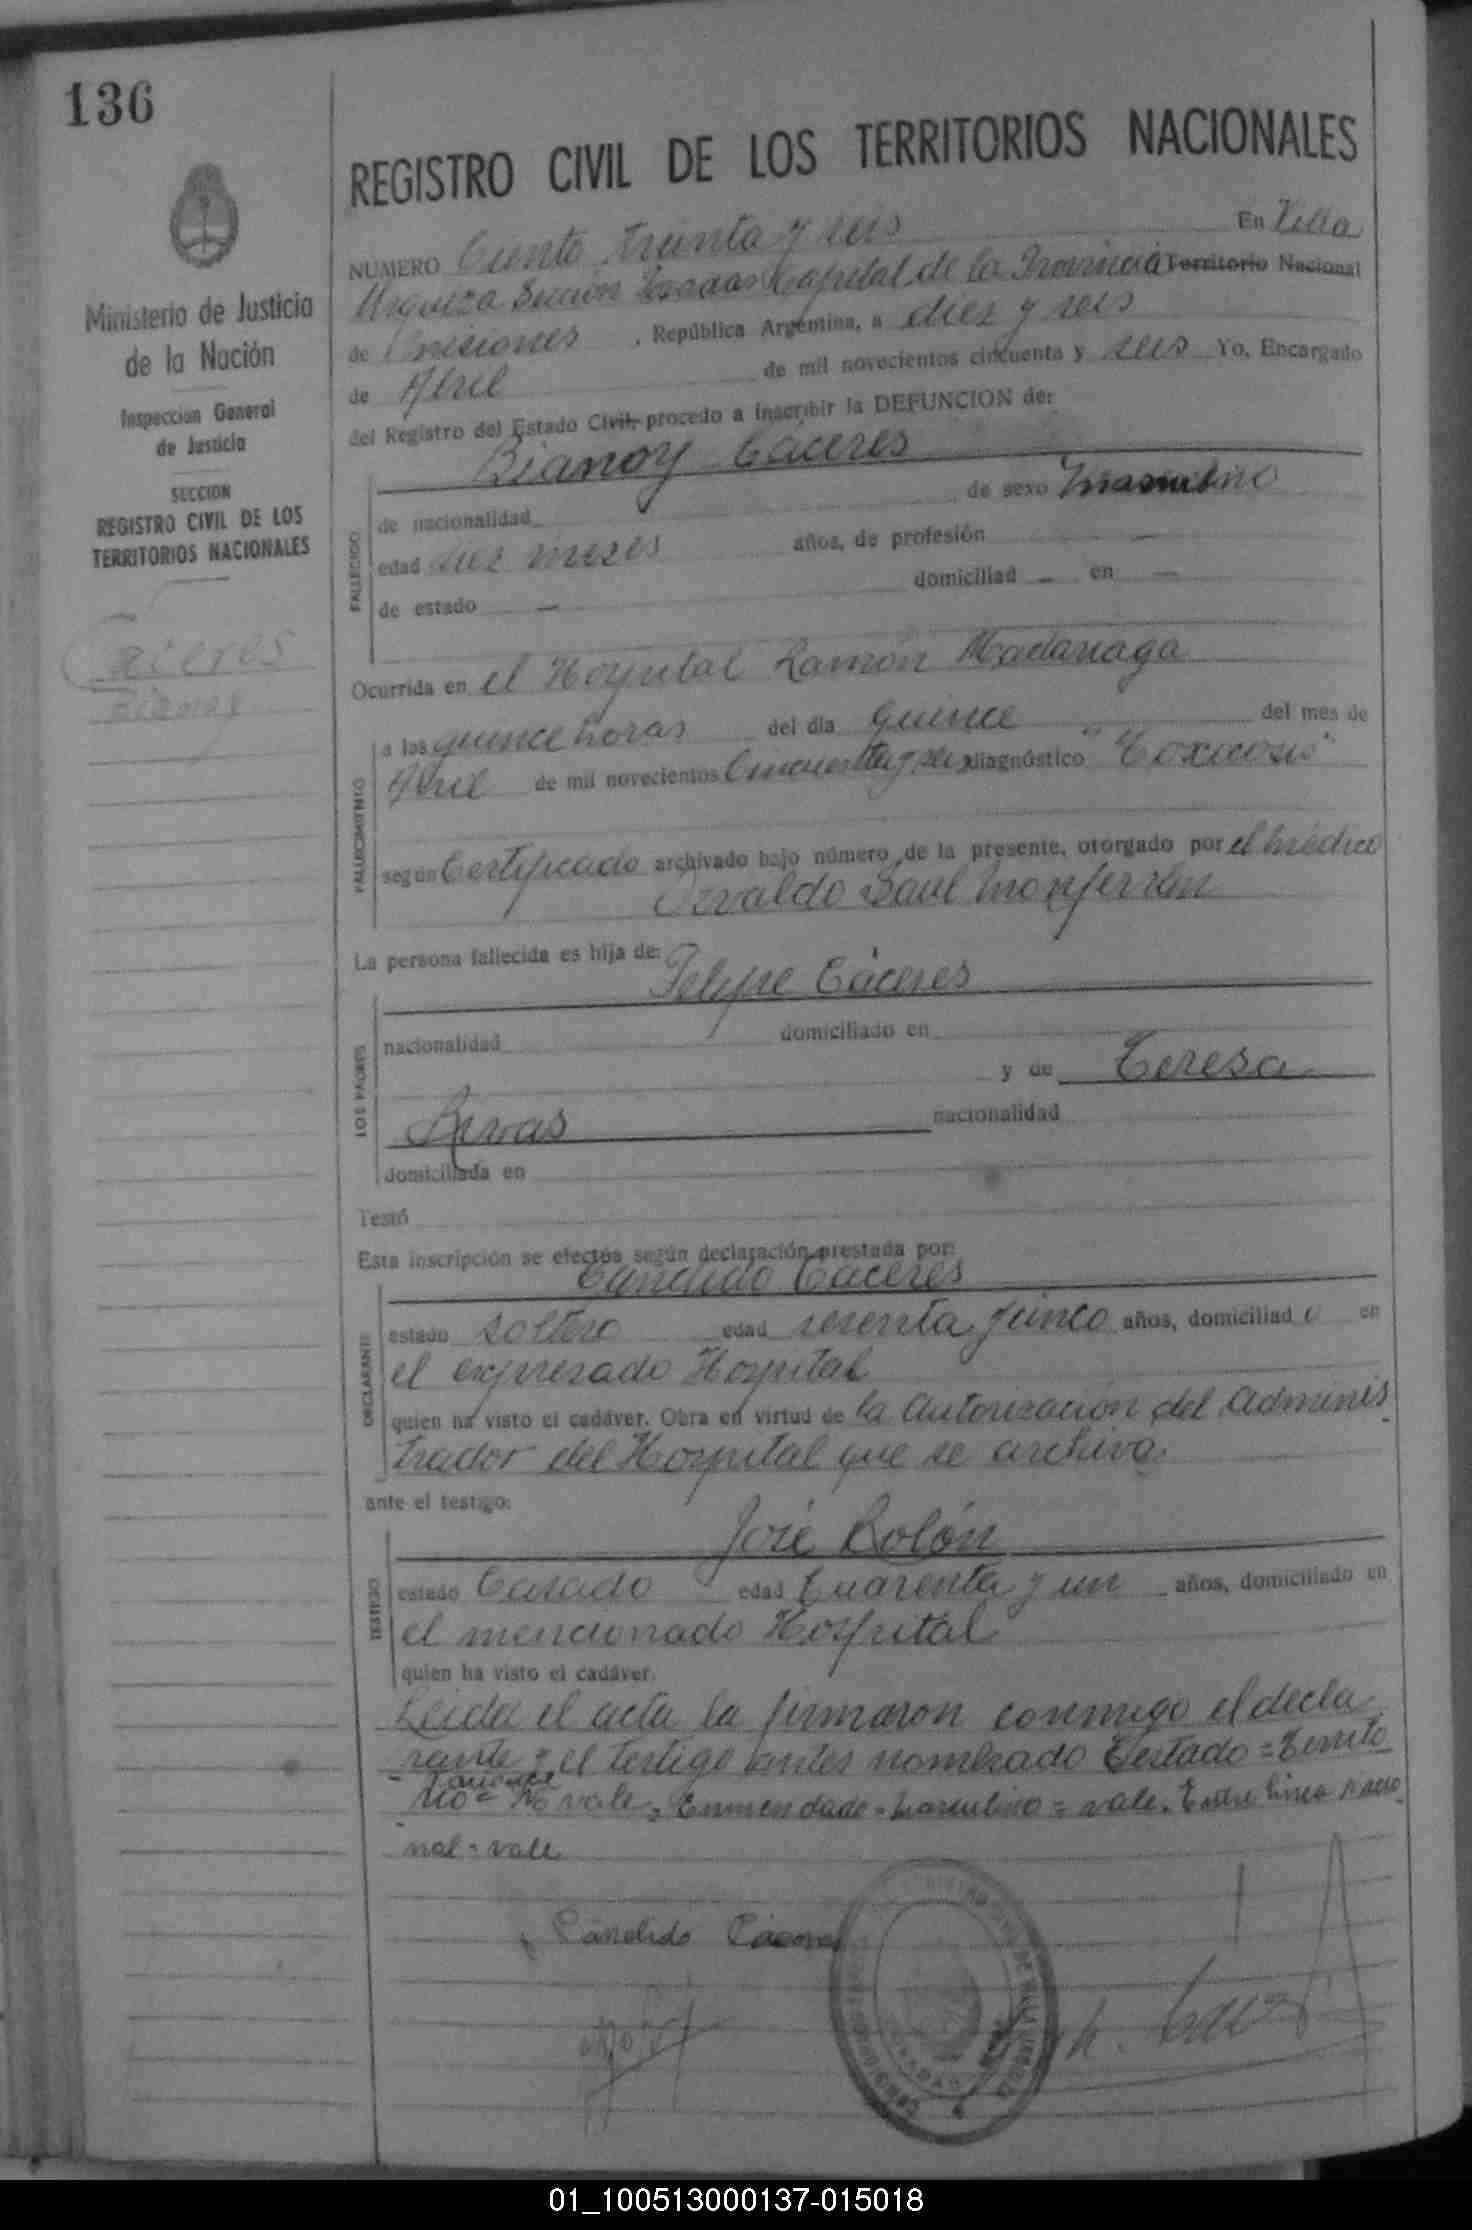 136
REGISTRO CIVIL DE LOS TERRITORIOS NACIONALES
Ministerio de Justicia
de la Nación
Inspeccion General
de Justicia
SECCION
REGISTRO CIVIL DE LOS
TERRITORIOS NACIONALES
Caceres
Bianoy
NUMERO Ciento treinta y seis En Villa
Urquiza Sección Posadas Capital de la Provincia Territorio Nacional
de Misiones, República Argentina, a diez y seis
de Abril de mil novecientos cincuenta y seis Yo, Encargado
del Registro del Estado Civil, procedo a inscribir la DEFUNCION de:
Bianoy Cáceres
FALLECIDO
de nacionalidad de sexo masculino
edad diez meses años, de profesión —
de estado — domiciliad — en —
Ocurrida en el Hospital Ramón Madariaga
FALLECIMIENTO
a las quince horas del día quince del mes de
Abril de mil novecientos Cincuenta y seis diagnóstico "Toxicosis"
según Certificado archivado bajo número de la presente, otorgado por el médico
Osvaldo Saul Monferrán
La persona fallecida es hija de:
Felipe Cáceres
LOS PADRES
nacionalidad domiciliado en
y de Teresa
Rivas nacionalidad
domiciliada en
Testó
Esta inscripción se efectúa según declaración prestada por:
Cándido Cáceres
DECLARANTE
estado soltero edad sesenta y cinco años, domiciliado en
el expresado Hospital
quien ha visto el cadáver. Obra en virtud de la autorización del Adminis
trador del Hospital que se archiva.
ante el testigo:
José Rolón
TESTIGO
estado Casado edad Cuarenta y un años, domiciliado en
el mencionado Hospital
quien ha visto el cadáver.
Leida el acta la firmaron conmigo el decla
rante y el testigo antes nombrado Testado = Territo
rio = Nacional
No vale. Enmendado = masculino = vale. Entre linea
nal = vale
Cándido Cáceres
01_100513000137-015018